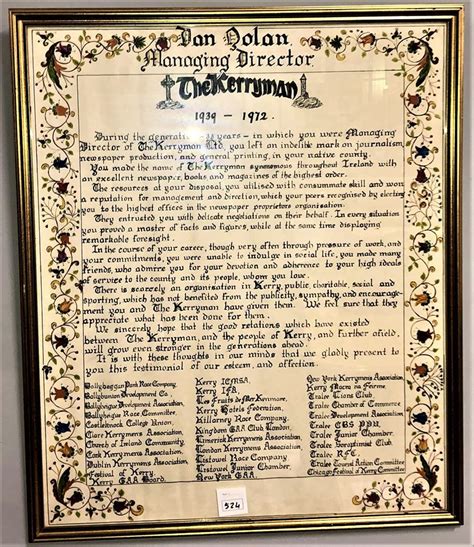 Dan Nolan
Managing Director
The Kerryman
1939 - 1972.
During the generation - years - in which you were Managing
Director of The Kerryman Ltd, you left an indelible mark on journalism,
newspaper production, and general printing, in your native county.
You made the name of The Kerryman synonomous throughout Ireland with
an excellent newspaper, books and magazines of the highest order.
The resources at your disposal, you utilised with consummate skill and won
a reputation for management and direction, which your peers recognised by electing
you to the highest offices in the newspaper proprietors organisation.
They entrusted you with delicate negotiations on their behalf. In every situation
you proved a master of facts and figures, while at the same time displaying
remarkable foresight.
In the course of your career, though very often through pressure of work, and
your commitments, you were unable to indulge in social life, you made many
friends, who admire you for your devotion and adherence to your high ideals
of service to the county and its people, whom you love.
There is scarcely an organisation in Kerry, public, charitable, social and
sporting, which has not benefited from the publicity, sympathy, and encourage-
ment you and The Kerryman have given them. We feel sure that they
appreciate what has been done for them.
We sincerely hope that the good relations which have existed
between The Kerryman, and the people of Kerry, and further afield,
will grow even stronger in the generations ahead.
It is with these thoughts in our minds that we gladly present to
you this testimonial of our esteem, and affection.
Ballybeggan Park Race Company.
Ballybunion Development Co.
Ballyheigue Development Association.
Ballyheigue Race Committee.
Castleisland College Union.
Clare Kerrymens Association.
Church of Ireland Community.
Cork Kerrymens Association.
Dublin Kerrymens Association.
Festival of Kerry.
Kerry GAA Board.
Kerry ICMSA.
Kerry IFA.
Kerry Hotels Federation.
Killarney Race Company.
Kingdom GAA Club London.
Limerick Kerrymens Association.
London Kerrymens Association.
Listowel Race Company
Listowel Junior Chamber.
New York GAA.
New York Kerrymens Association.
Kerry Macra na Feirme.
Tralee Lions Club.
Tralee Chamber of Commerce
Tralee Development Association.
Tralee CBS PPU.
Tralee Junior Chamber.
Tralee Soroptimist Club.
Tralee RFC.
Tralee Council Action Committee
Chicago Festival of Kerry Committee
524